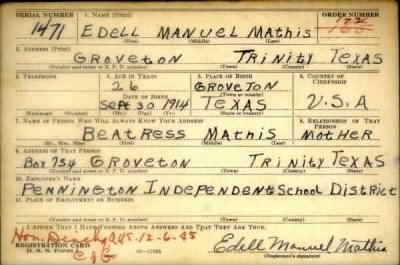 SERIAL NUMBER 1. NAME (Print) ORDER NUMBER
1471 EDELL MANUEL MATHIS 172
165
(First) (Middle) (Last)
2. ADDRESS (Print)
GROVETON TRINITY TEXAS
(Number and street or R. F. D. number) (Town) (County) (State)
3. TELEPHONE 4. AGE IN YEARS 5. PLACE OF BIRTH 6. COUNTRY OF CITIZENSHIP
26 GROVETON U.S.A
DATE OF BIRTH (Town or county)
SEPT 30 1914 TEXAS
(Exchange) (Number) (Mo.) (Day) (Yr.) (State or country)
7. NAME OF PERSON WHO WILL ALWAYS KNOW YOUR ADDRESS 8. RELATIONSHIP OF THAT PERSON
BEATRESS MATHIS MOTHER
(Mr., Mrs., Miss) (First) (Middle) (Last)
9. ADDRESS OF THAT PERSON
BOX 734 GROVETON TRINITY TEXAS
(Number and street or R. F. D. number) (Town) (County) (State)
10. EMPLOYER'S NAME
PENNINGTON INDEPENDENT SCHOOL DISTRICT
11. PLACE OF EMPLOYMENT OR BUSINESS
(Number and street or R. F. D. number) (Town) (County) (State)
I AFFIRM THAT I HAVE VERIFIED ABOVE ANSWERS AND THAT THEY ARE TRUE.
Hon. 12-6-45
REGISTRATION CARD
D. S. S. Form 1. 16-17105 Edell Manuel Mathis